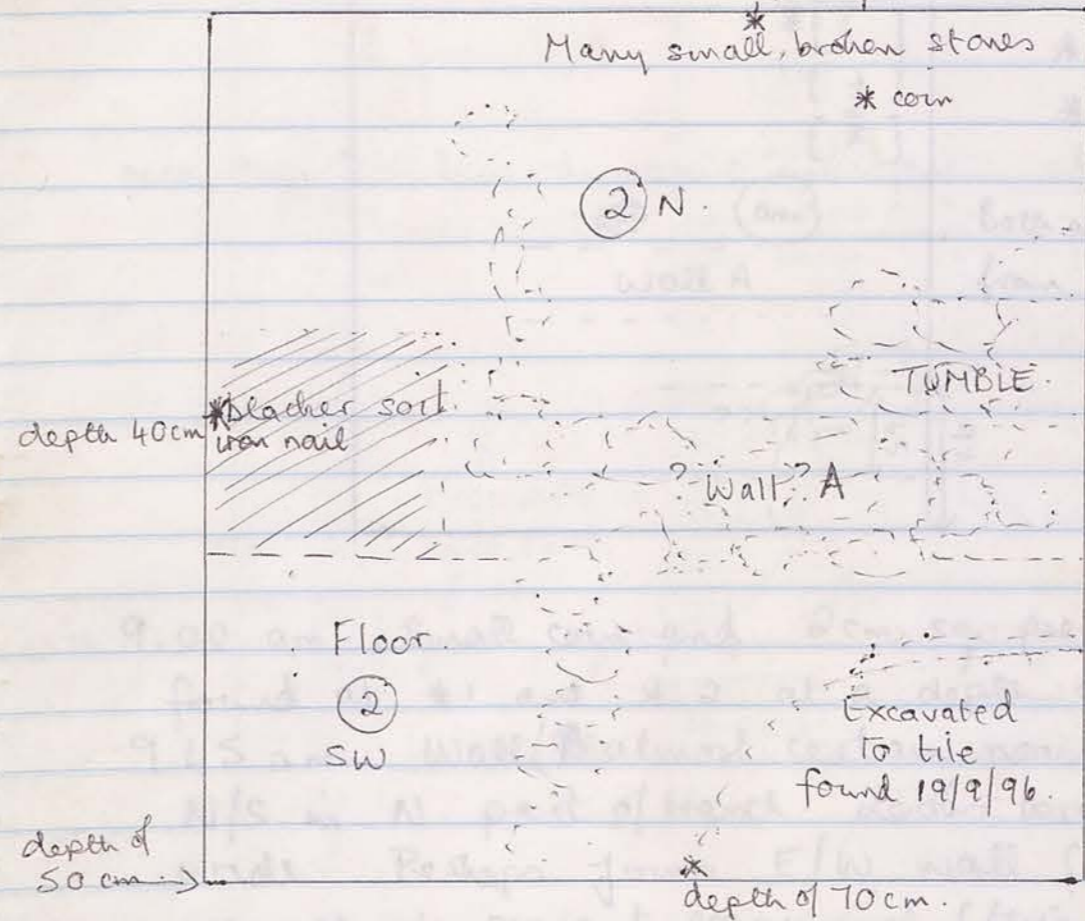 Many small, broken stones
* coin
2 N.
TUMBLE.
* blacker soil.
depth 40cm iron nail
? Wall? A
Floor.
2
SW
Excavated
to tile
found 19/9/96.
depth of
50 cm →
depth of 70cm.